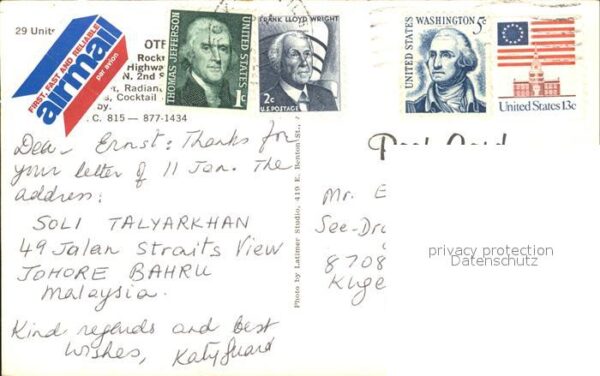 29 Units
OTE
Rock
Highway
N. 2nd S
t, Radian
s, Cocktail
by.
C. 815 — 877-1434
FIRST, FAST AND RELIABLE
airmail
par avion
THOMAS JEFFERSON
UNITED STATES
1c
FRANK LLOYD WRIGHT
2c
U.S. POSTAGE
UNITED STATES
WASHINGTON 5c
United States 13c
Post Card
Dear Ernst: Thanks for
your letter of 11 Jan. The
address:
SOLI TALYARKHAN
49 Jalan Straits View
JOHORE BAHRU
Malaysia.
Kind regards and best
wishes, Katy Guard
Photo by Latimer Studio, 419 E. Benton St.,
Mr. E
See-Dr
8708
privacy protection
Datenschutz